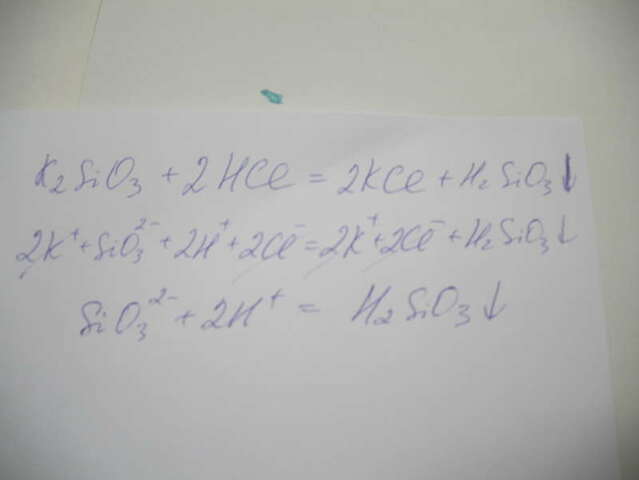 K₂SiO₃ + 2HCl = 2KCl + H₂SiO₃↓
2K⁺ + SiO₃²⁻ + 2H⁺ + 2Cl⁻ = 2K⁺ + 2Cl⁻ + H₂SiO₃↓
SiO₃²⁻ + 2H⁺ = H₂SiO₃↓